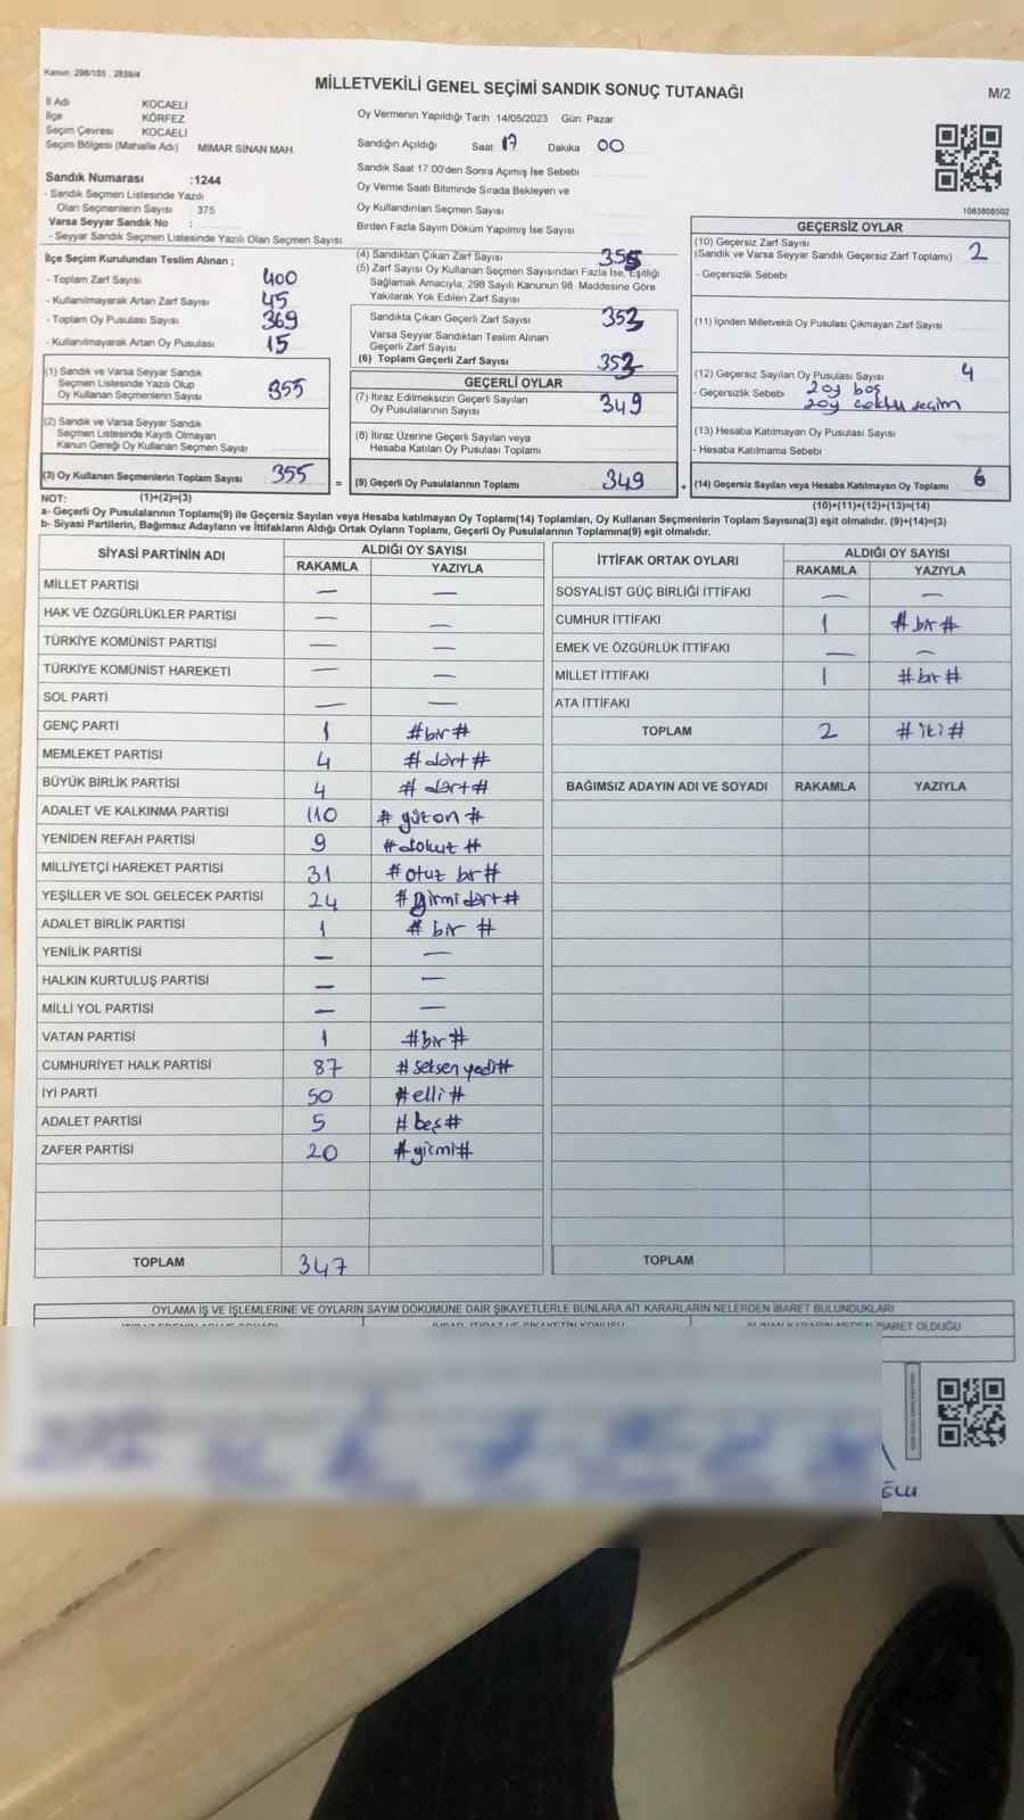 Kanun: 298/105 , 2839/4
MİLLETVEKİLİ GENEL SEÇİMİ SANDIK SONUÇ TUTANAĞI
M/2
İl Adı KOCAELİ
İlçe KÖRFEZ
Seçim Çevresi KOCAELİ
Seçim Bölgesi (Mahalle Adı) MİMAR SİNAN MAH.
Sandık Numarası :1244
- Sandık Seçmen Listesinde Yazılı
Olan Seçmenlerin Sayısı 375
Varsa Seyyar Sandık No :
- Seyyar Sandık Seçmen Listesinde Yazılı Olan Seçmen Sayısı
Oy Vermenin Yapıldığı Tarih 14/05/2023 Gün: Pazar
Sandığın Açıldığı Saat 17 Dakika 00
Sandık Saat 17:00'den Sonra Açılmış İse Sebebi
Oy Verme Saati Bitiminde Sırada Bekleyen ve
Oy Kullandırılan Seçmen Sayısı
Birden Fazla Sayım Döküm Yapılmış İse Sayısı
1083808502
İlçe Seçim Kurulundan Teslim Alınan ;
- Toplam Zarf Sayısı 400
- Kullanılmayarak Artan Zarf Sayısı 45
- Toplam Oy Pusulası Sayısı 369
- Kullanılmayarak Artan Oy Pusulası 15
(1) Sandık ve Varsa Seyyar Sandık
Seçmen Listesinde Yazılı Olup
Oy Kullanan Seçmenlerin Sayısı 355
(2) Sandık ve Varsa Seyyar Sandık
Seçmen Listesinde Kayıtlı Olmayan
Kanun Gereği Oy Kullanan Seçmen Sayısı
(3) Oy Kullanan Seçmenlerin Toplam Sayısı 355
(4) Sandıktan Çıkan Zarf Sayısı 355
(5) Zarf Sayısı Oy Kullanan Seçmen Sayısından Fazla İse, Eşitliği
Sağlamak Amacıyla, 298 Sayılı Kanunun 98. Maddesine Göre
Yakılarak Yok Edilen Zarf Sayısı
Sandıkta Çıkan Geçerli Zarf Sayısı 353
Varsa Seyyar Sandıktan Teslim Alınan
Geçerli Zarf Sayısı
(6) Toplam Geçerli Zarf Sayısı 353
GEÇERLİ OYLAR
(7) İtiraz Edilmeksizin Geçerli Sayılan
Oy Pusulalarının Sayısı 349
(8) İtiraz Üzerine Geçerli Sayılan veya
Hesaba Katılan Oy Pusulası Toplamı
= (9) Geçerli Oy Pusulalarının Toplamı 349
GEÇERSİZ OYLAR
(10) Geçersiz Zarf Sayısı
(Sandık ve Varsa Seyyar Sandık Geçersiz Zarf Toplamı) 2
- Geçersizlik Sebebi
(11) İçinden Milletvekili Oy Pusulası Çıkmayan Zarf Sayısı
(12) Geçersiz Sayılan Oy Pusulası Sayısı 4
- Geçersizlik Sebebi 2oy boş
2oy çoklu seçim
(13) Hesaba Katılmayan Oy Pusulası Sayısı
- Hesaba Katılmama Sebebi
+ (14) Geçersiz Sayılan veya Hesaba Katılmayan Oy Toplamı 6
NOT: (1)+(2)=(3) (10)+(11)+(12)+(13)=(14)
a- Geçerli Oy Pusulalarının Toplamı(9) ile Geçersiz Sayılan veya Hesaba katılmayan Oy Toplamı(14) Toplamları, Oy Kullanan Seçmenlerin Toplam Sayısına(3) eşit olmalıdır. (9)+(14)=(3)
b- Siyasi Partilerin, Bağımsız Adayların ve İttifakların Aldığı Ortak Oyların Toplamı, Geçerli Oy Pusulalarının Toplamına(9) eşit olmalıdır.
SİYASİ PARTİNİN ADI ALDIĞI OY SAYISI
RAKAMLA YAZIYLA
MİLLET PARTİSİ — —
HAK VE ÖZGÜRLÜKLER PARTİSİ — —
TÜRKİYE KOMÜNİST PARTİSİ — —
TÜRKİYE KOMÜNİST HAREKETİ — —
SOL PARTİ — —
GENÇ PARTİ 1 #bir#
MEMLEKET PARTİSİ 4 #dört#
BÜYÜK BİRLİK PARTİSİ 4 #dört#
ADALET VE KALKINMA PARTİSİ 110 #yüzon#
YENİDEN REFAH PARTİSİ 9 #dokuz#
MİLLİYETÇİ HAREKET PARTİSİ 31 #otuz bir#
YEŞİLLER VE SOL GELECEK PARTİSİ 24 #yirmidört#
ADALET BİRLİK PARTİSİ 1 #bir#
YENİLİK PARTİSİ — —
HALKIN KURTULUŞ PARTİSİ — —
MİLLİ YOL PARTİSİ — —
VATAN PARTİSİ 1 #bir#
CUMHURİYET HALK PARTİSİ 87 #seksen yedi#
İYİ PARTİ 50 #elli#
ADALET PARTİSİ 5 #beş#
ZAFER PARTİSİ 20 #yirmi#
TOPLAM 347
İTTİFAK ORTAK OYLARI ALDIĞI OY SAYISI
RAKAMLA YAZIYLA
SOSYALİST GÜÇ BİRLİĞİ İTTİFAKI — —
CUMHUR İTTİFAKI 1 #bir#
EMEK VE ÖZGÜRLÜK İTTİFAKI — —
MİLLET İTTİFAKI 1 #bir#
ATA İTTİFAKI
TOPLAM 2 #iki#
BAĞIMSIZ ADAYIN ADI VE SOYADI RAKAMLA YAZIYLA
TOPLAM
OYLAMA İŞ VE İŞLEMLERİNE VE OYLARIN SAYIM DÖKÜMÜNE DAİR ŞİKAYETLERLE BUNLARA AİT KARARLARIN NELERDEN İBARET BULUNDUKLARI
İBARET OLDUĞU